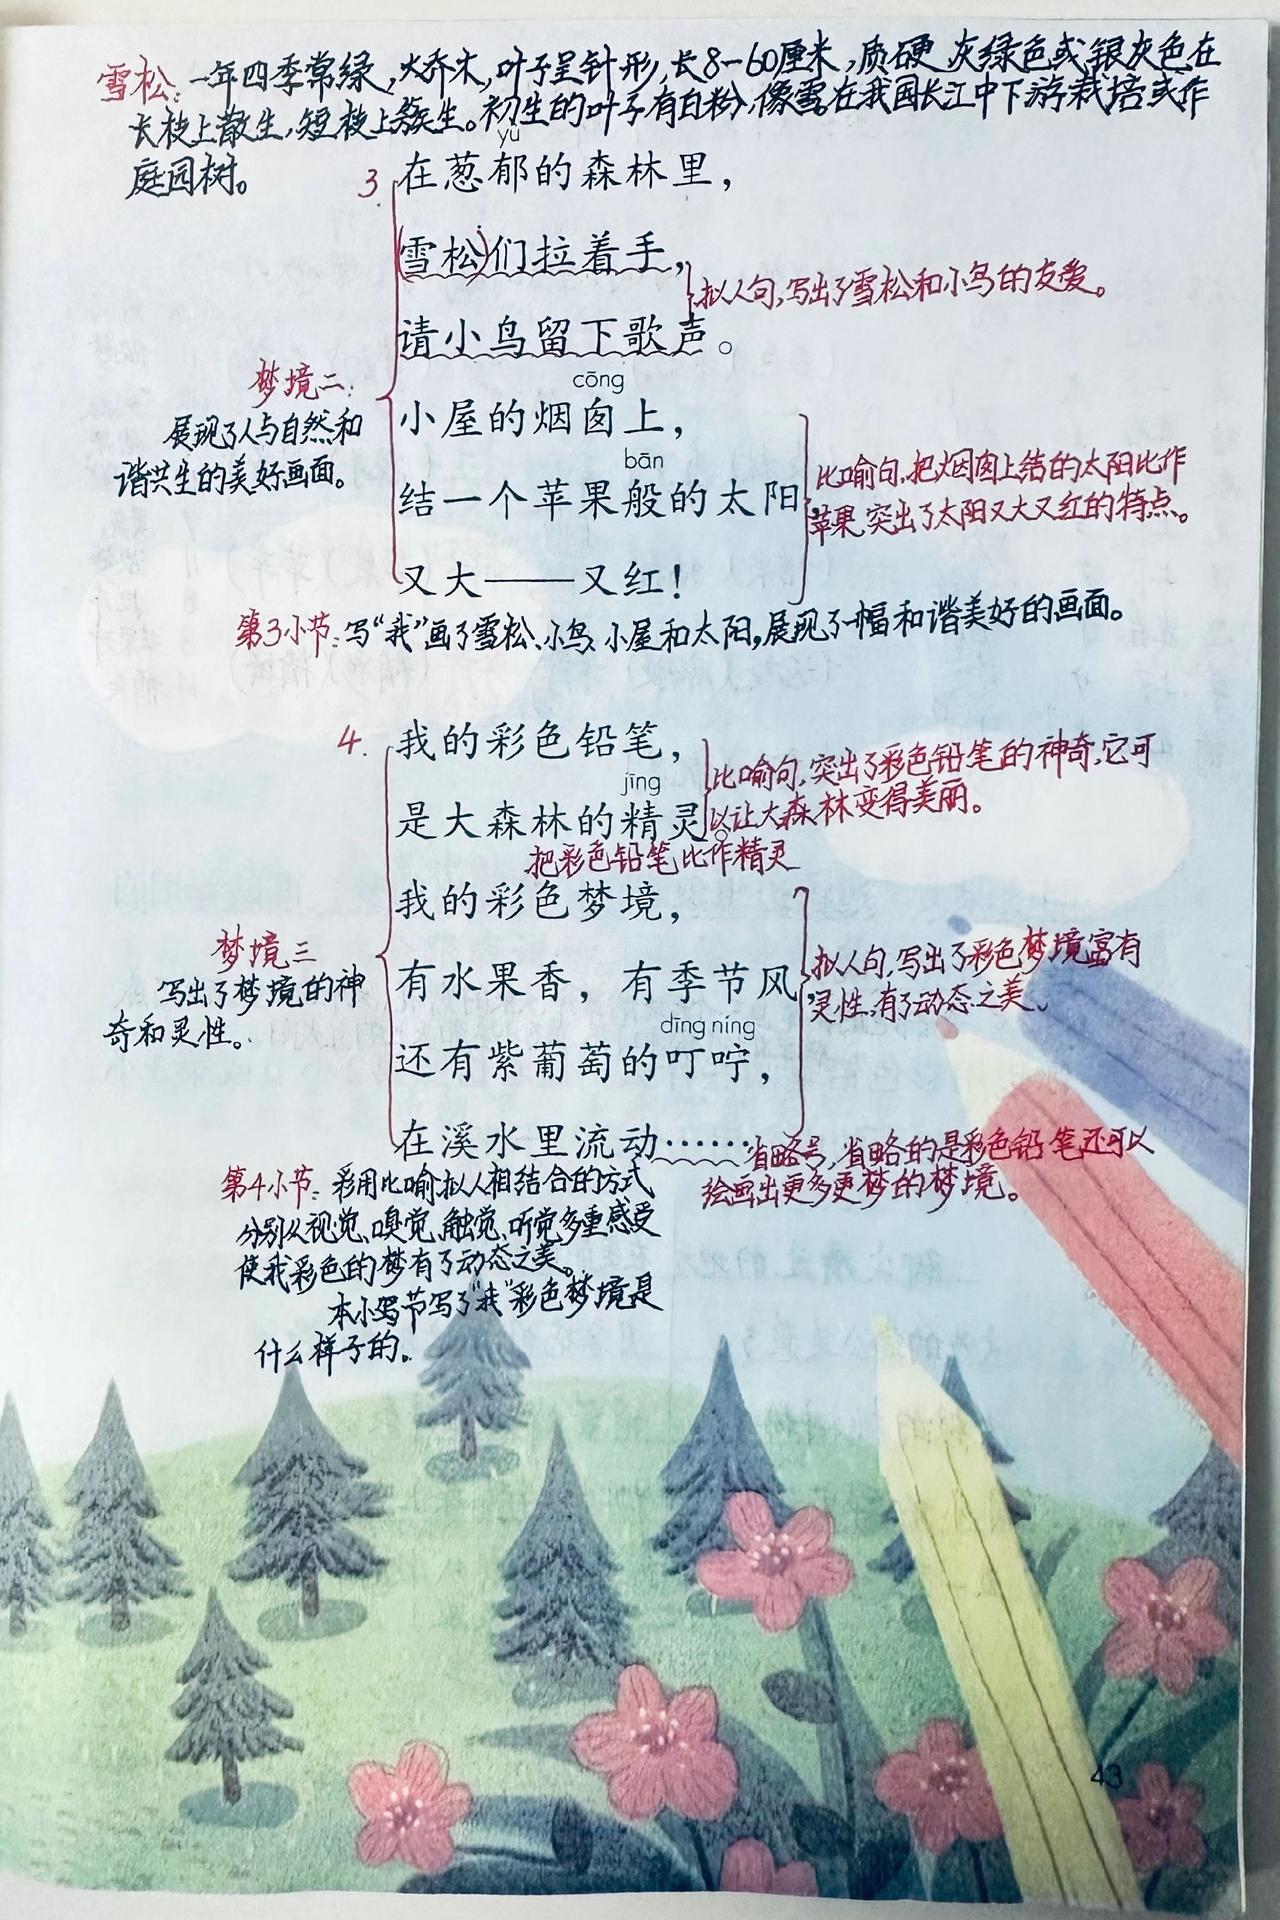 雪松:一年四季常绿,大乔木,叶子呈针形,长8-60厘米,质硬,灰绿色或银灰色在
长枝上散生,短枝上簇生。初生的叶子有白粉,像雪。在我国长江中下游栽培或作
庭园树。
yù
3. 在葱郁的森林里,
(雪松)们拉着手,
拟人句,写出了雪松和小鸟的友爱。
请小鸟留下歌声。
梦境二:
展现了人与自然和
谐共生的美好画面。
cōng
小屋的烟囱上,
bān
结一个苹果般的太阳,
比喻句,把烟囱上结的太阳比作
苹果,突出了太阳又大又红的特点。
又大——又红!
第3小节:写“我”画了雪松、小鸟、小屋和太阳,展现了一幅和谐美好的画面。
4. 我的彩色铅笔,
jīng
是大森林的精灵。
比喻句,突出了彩色铅笔的神奇,它可
以让大森林变得美丽。
把彩色铅笔比作精灵
我的彩色梦境,
梦境三
写出了梦境的神
奇和灵性。
有水果香,有季节风,
拟人句,写出了彩色梦境富有
灵性,有了动态之美。
dīng níng
还有紫葡萄的叮咛,
在溪水里流动……
省略号,省略的是彩色铅笔还可以
绘画出更多更梦的梦境。
第4小节:彩用比喻拟人相结合的方式
分别从视觉、嗅觉、触觉、听觉多重感受
使我彩色的梦有了动态之美。
本小写节写了“我”彩色梦境是
什么样子的。
43